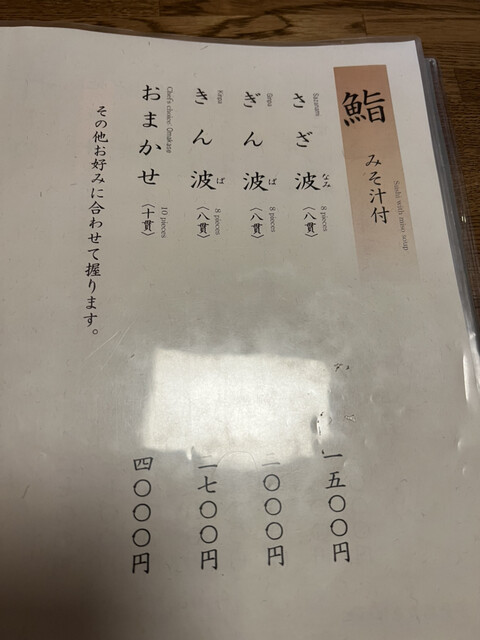 鮨 みそ汁付
Sushi with miso soup
さざ波 (八貫) 一五〇〇円
なみ
Sazanami 8 pieces
ぎん波 (八貫) 二〇〇〇円
ぱ
8 pieces
きん波 (八貫) 二七〇〇円
ぱ
8 pieces
おまかせ (十貫) 四〇〇〇円
Chef's choice/Omakase 10 pieces
その他お好みに合わせて握ります。